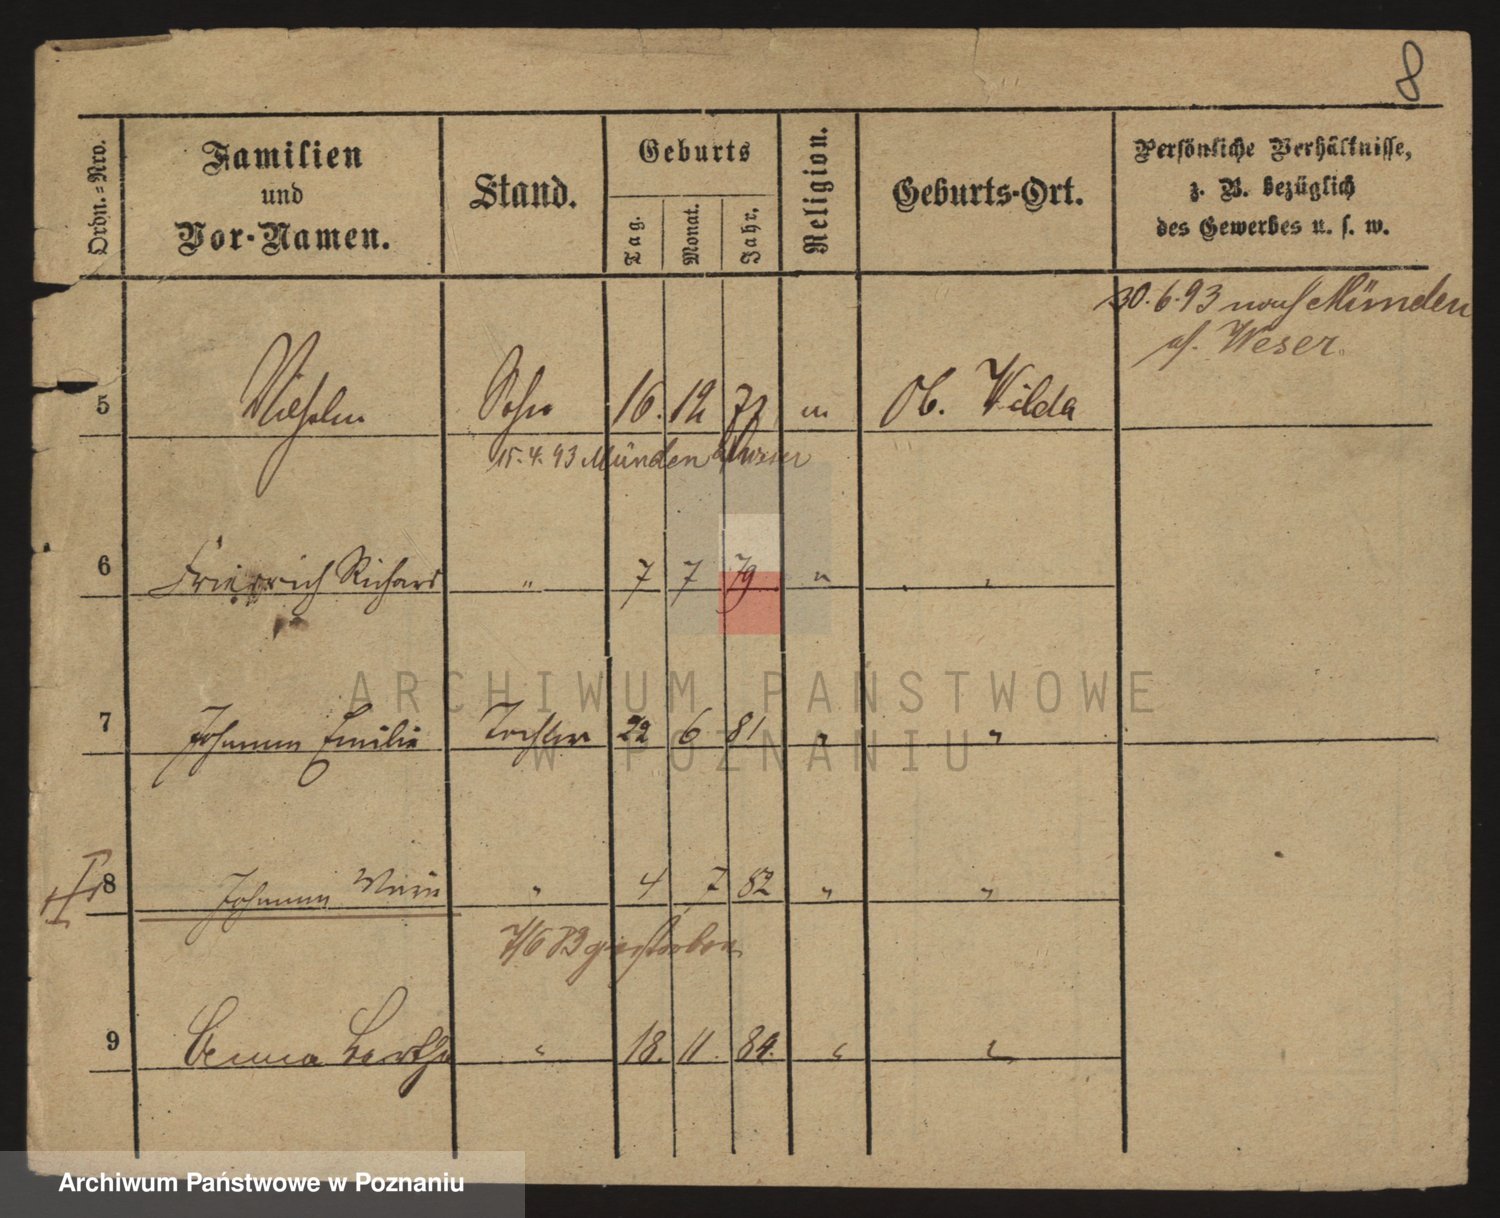 8
Ordn.=Nro.
Familien
und
Vor-Namen.
Stand.
Geburts
Tag.
Monat.
Jahr.
Religion.
Geburts-Ort.
Persönliche Verhältnisse,
z. B. bezüglich
des Gewerbes u. s. w.
30.6.93 nach Münden
a/. Weser.
5 Wilhelm Sohn 16. 12 Ob. Wilda
15.4.93 Münden a/Weser
6 Friedrich Richard " 7 7 79 " "
7 Johanna Emilie Tochter 22 6 81 " "
8 Johanna " 4 7 82 " "
gestorben
9 Emma Bertha " 18. 11. 84. " "
ARCHIWUM PAŃSTWOWE
W POZNANIU
Archiwum Państwowe w Poznaniu